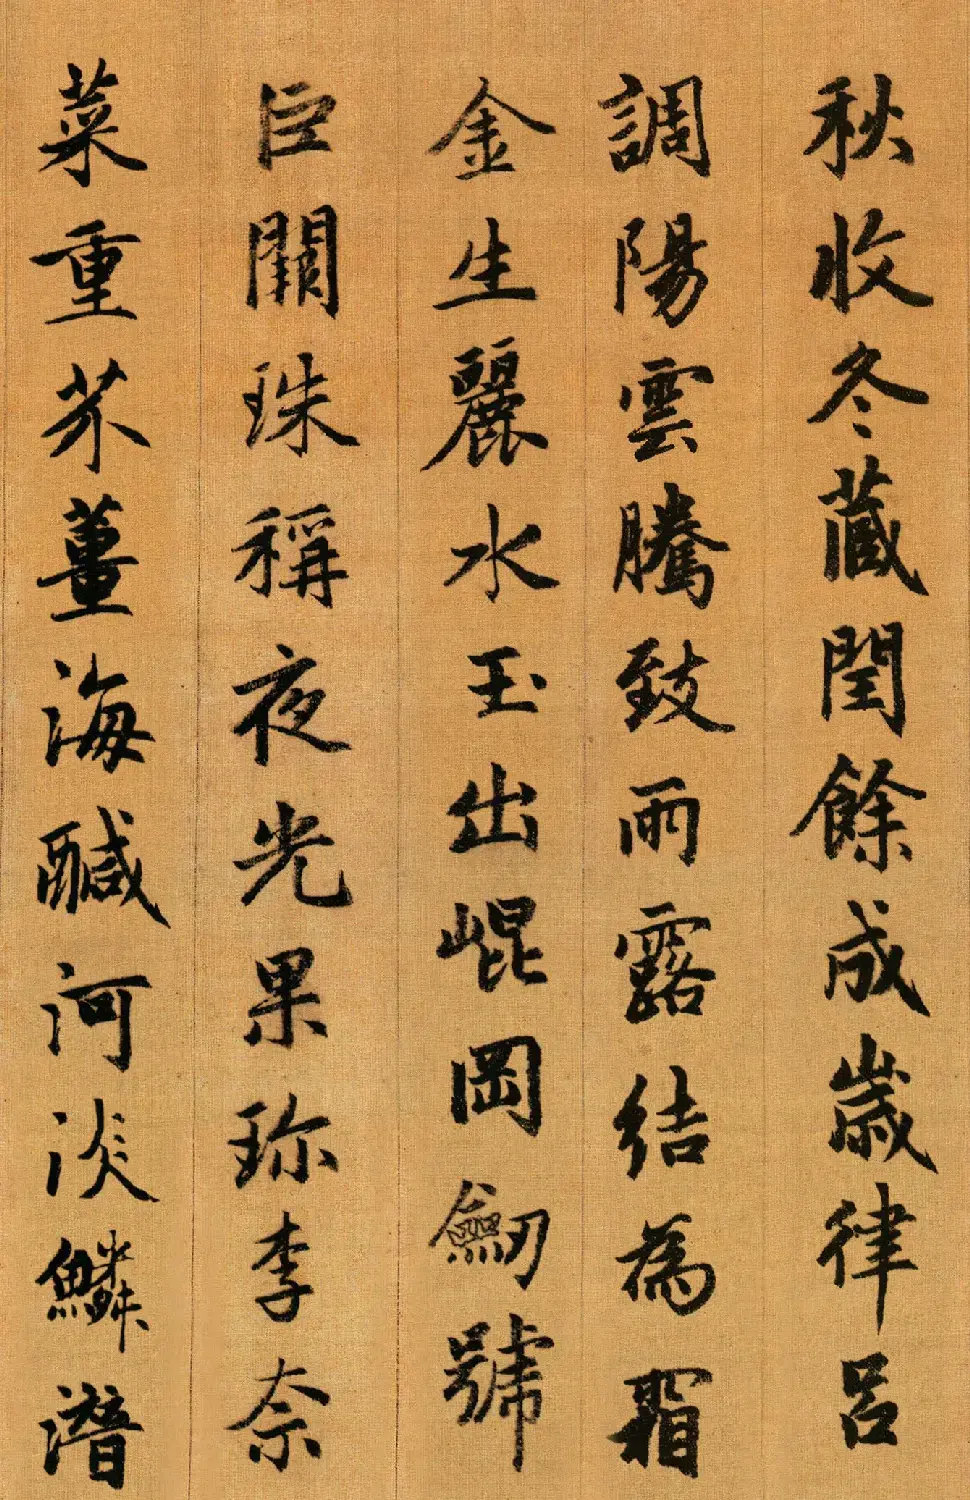 秋收冬蔵閏餘成歲律呂
調陽雲騰致雨露結為霜
金生麗水玉出崐岡劒號
巨闕珠稱夜光果珎李柰
菜重芥薑海鹹河淡鱗潛